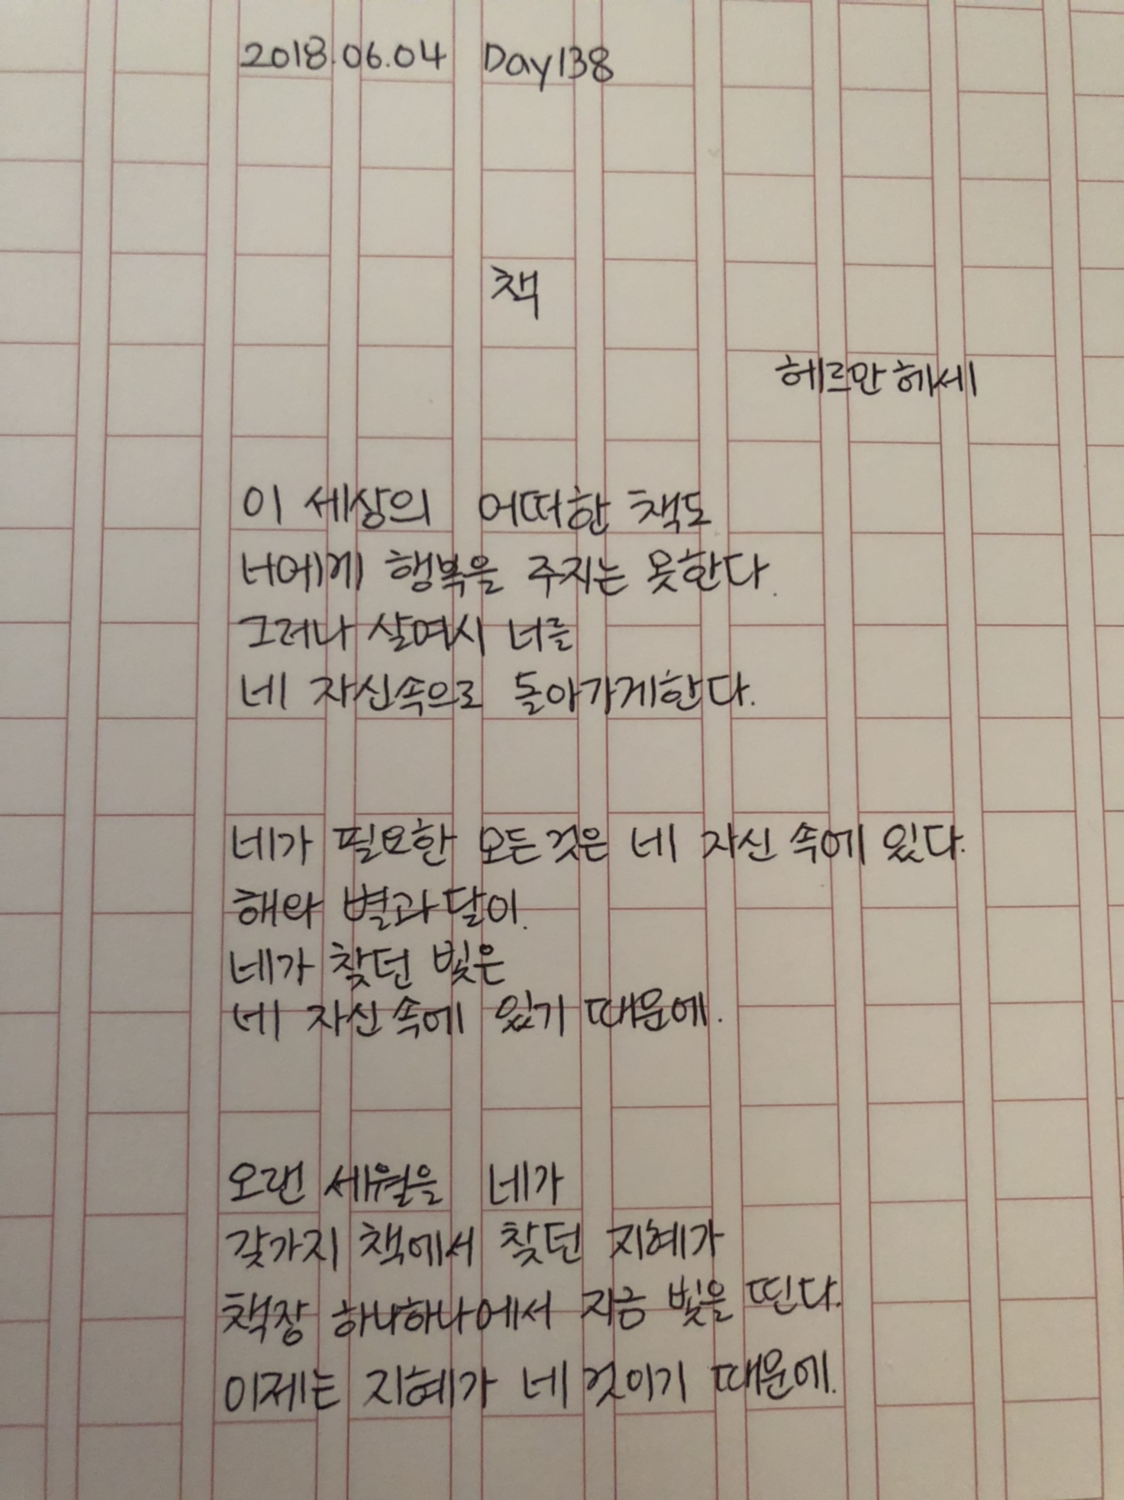 2018.06.04 Day138
책
헤르만 헤세
이 세상의 어떠한 책도
너에게 행복을 주지는 못한다.
그러나 살며시 너를
네 자신속으로 돌아가게한다.
네가 필요한 모든것은 네 자신 속에 있다.
해와 별과 달이.
네가 찾던 빛은
네 자신 속에 있기 때문에.
오랜 세월을 네가
갖가지 책에서 찾던 지혜가
책장 하나하나에서 지금 빛을 띤다.
이제는 지혜가 네 것이기 때문에.